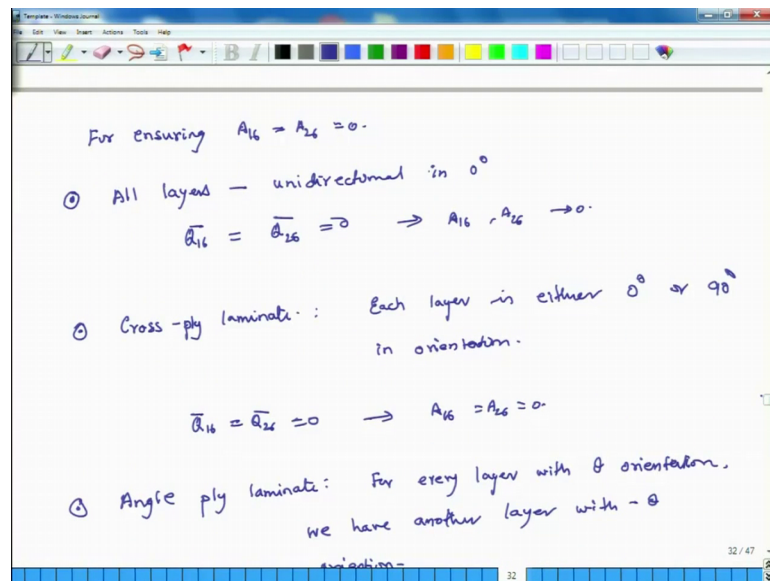 Template - Windows Journal
File Edit View Insert Actions Tools Help
For ensuring A16 = A26 = 0.
⊙ All layers – unidirectional in 0°
Q̄16 = Q̄26 = 0 → A16, A26 → 0.
⊙ Cross-ply laminate : Each layer is either 0° or 90°
in orientation.
Q̄16 = Q̄26 = 0 → A16 = A26 = 0.
⊙ Angle ply laminate : For every layer with θ orientation,
we have another layer with - θ
32 / 47
32